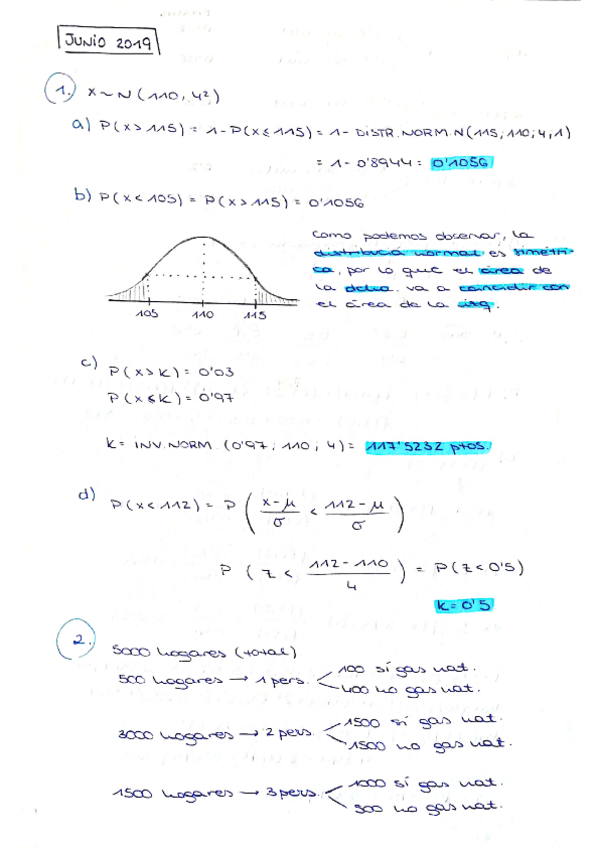 JUNIO 2019
1. X ~ N (110, 4²)
a) P(X > 115) = 1 - P(X ≤ 115) = 1 - DISTR.NORM.N(115; 110; 4; 1)
= 1 - 0'8944 = 0'1056
b) P(X < 105) = P(X > 115) = 0'1056
Como podemos observar, la
distribució normal es simétri-
ca, por lo que el área de
la dcha. va a coincidir con
el área de la izq.
105 110 115
c) P(X > K) = 0'03
P(X ≤ K) = 0'97
K = INV.NORM. (0'97; 110; 4) = 117'5232 ptos.
d) P(X < 112) = P ( X - μ / σ < 112 - μ / σ )
P ( Z < 112 - 110 / 4 ) = P(Z < 0'5)
K = 0'5
2.
5000 hogares (total)
500 hogares → 1 pers. < 100 sí gas nat.
400 no gas nat.
3000 hogares → 2 pers. < 1500 sí gas nat.
1500 no gas nat.
1500 hogares → 3 pers. < 1000 sí gas nat.
500 no gas nat.